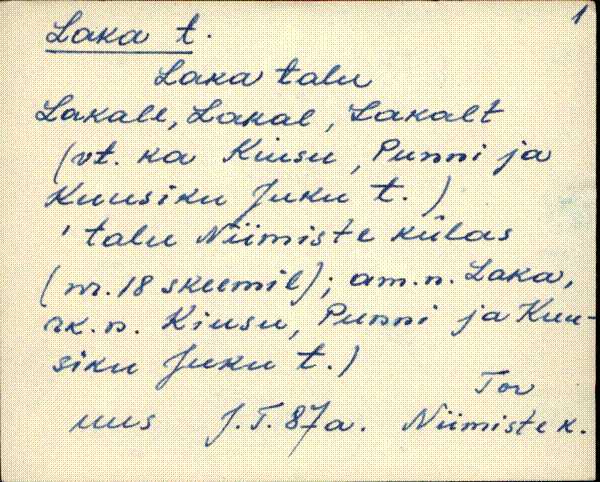 1
Laka t.
Laka talu
Lakale, Lakal, Lakalt
(vt. ka Kiusu, Punni ja
Kuusiku Juku t.)
' talu Niimiste külas
(nr. 18 skeemil); am.n. Laka,
rk.n. Kiusu, Punni ja Kuu-
siku Juku t.)
Tor
uus J.T. 87a. Niimiste k.